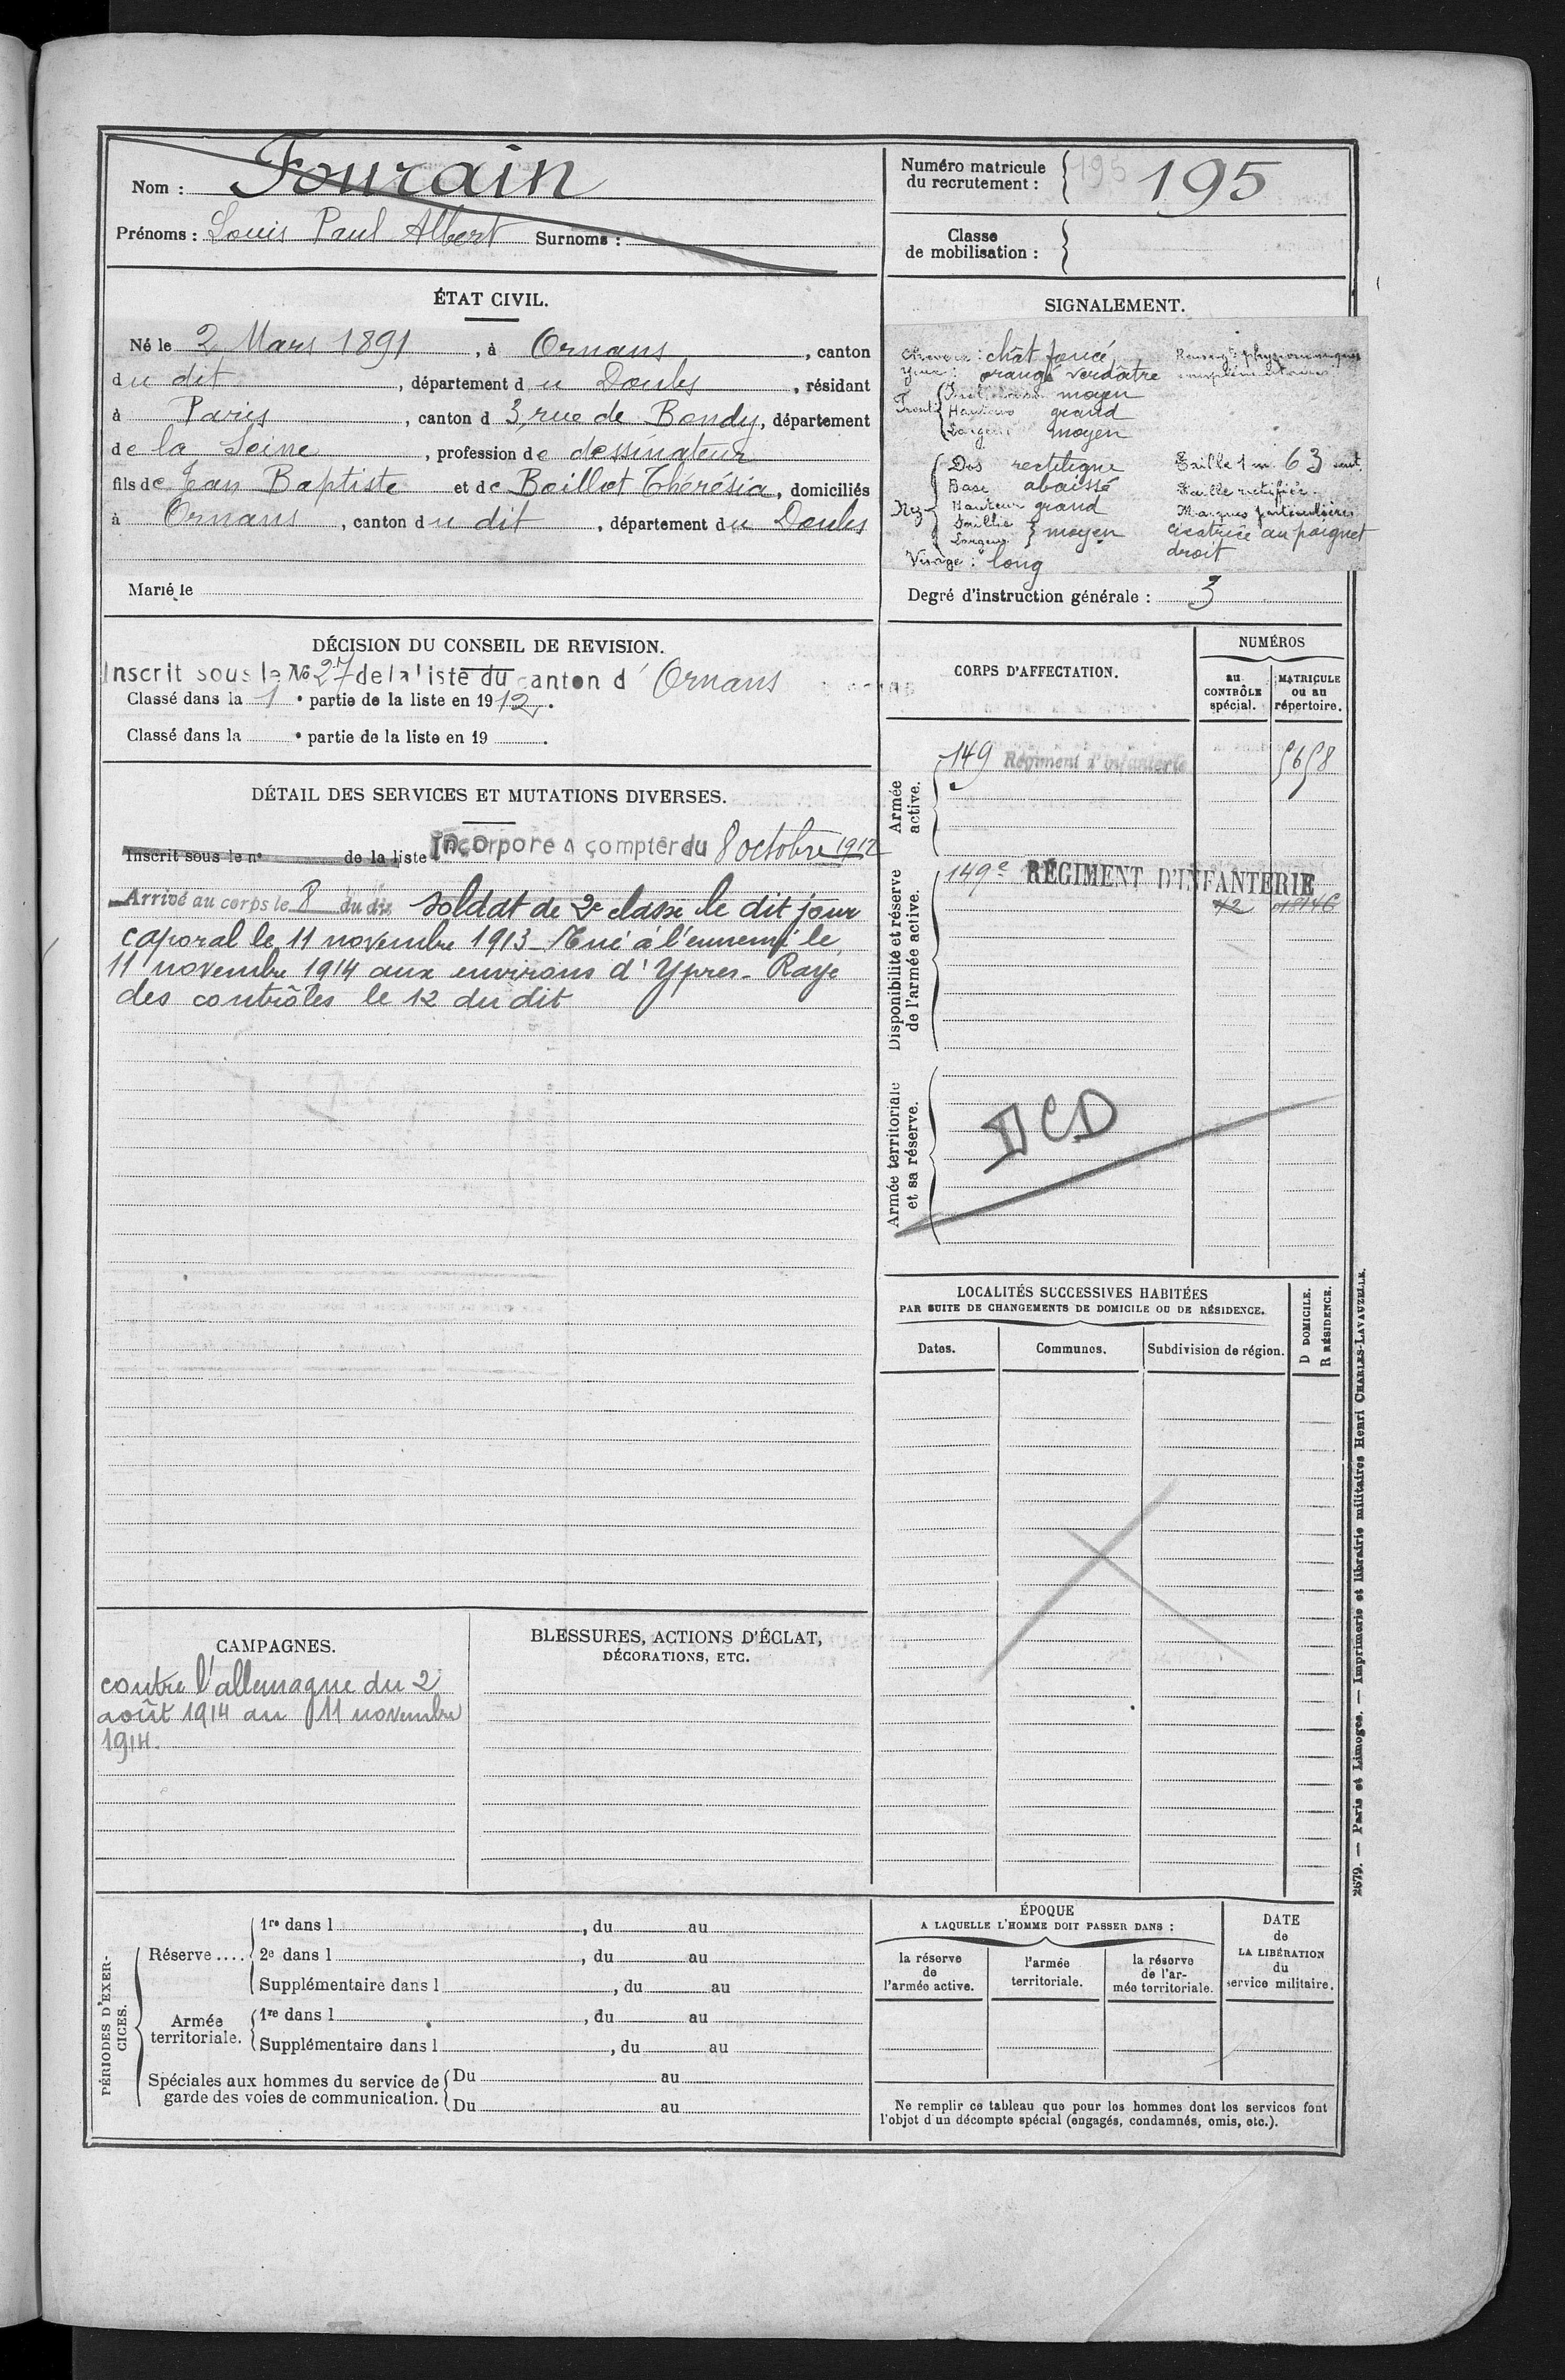 Nom : Fourain
Prénoms : Louis Paul Albert Surnoms :
Numéro matricule du recrutement : 195 195
Classe de mobilisation :
ÉTAT CIVIL.
Né le 2 Mars 1891, à Ornans, canton
du dit, département du Doubs, résidant
à Paris, canton d 3, rue de Bondy, département
de la Seine, profession de dessinateur
fils de Jean Baptiste et de Boillot Thérésia, domiciliés
à Ornans, canton du dit, département du Doubs
Marié le
SIGNALEMENT.
Cheveux : chât foncé
Yeux : orangé verdâtre
Front moyen
Hauteur grand
Largeur moyen
Nez
Dos rectiligne
Base abaissé
Hauteur grand
Saillie
Largeur } moyen
Visage : long
Renseigts physionomiques
complémentaires :
Taille 1 m 63 cent.
Taille rectifiée
Marques particulières
cicatrice au poignet
droit
Degré d'instruction générale : 3
DÉCISION DU CONSEIL DE REVISION.
Inscrit sous le No 27 de la liste du canton d'Ornans
Classé dans la 1 e partie de la liste en 1912.
Classé dans la e partie de la liste en 19 .
DÉTAIL DES SERVICES ET MUTATIONS DIVERSES.
Inscrit sous le n° de la liste Incorporé à compter du 8 octobre 1912
Arrivé au corps le 8 du dit soldat de 2e classe le dit jour
caporal le 11 novembre 1913 - Tué à l'ennemi le
11 novembre 1914 aux environs d'Ypres - Rayé
des contrôles le 12 du dit
CORPS D'AFFECTATION.
NUMÉROS
au CONTRÔLE spécial.
MATRICULE ou au répertoire.
Armée active.
149 Régiment d'infanterie 5658
Disponibilité et réserve de l'armée active.
149e RÉGIMENT D'INFANTERIE
Armée territoriale et sa réserve.
DCD
LOCALITÉS SUCCESSIVES HABITÉES
PAR SUITE DE CHANGEMENTS DE DOMICILE OU DE RÉSIDENCE.
Dates.
Communes.
Subdivision de région.
D DOMICILE.
R RÉSIDENCE.
CAMPAGNES.
contre l'allemagne du 2
août 1914 au 11 novembre
1914.
BLESSURES, ACTIONS D'ÉCLAT,
DÉCORATIONS, ETC.
PÉRIODES D'EXERCICES.
Réserve ....
1re dans l , du au
2e dans l , du au
Supplémentaire dans l , du au
Armée territoriale.
1re dans l , du au
Supplémentaire dans l , du au
Spéciales aux hommes du service de
garde des voies de communication.
Du au
Du au
ÉPOQUE
A LAQUELLE L'HOMME DOIT PASSER DANS :
la réserve de l'armée active.
l'armée territoriale.
la réserve de l'armée territoriale.
DATE de LA LIBÉRATION du service militaire.
Ne remplir ce tableau que pour les hommes dont les services font
l'objet d'un décompte spécial (engagés, condamnés, omis, etc.).
2679. — Paris et Limoges. — Imprimerie et librairie militaires Henri CHARLES-LAVAUZELLE.